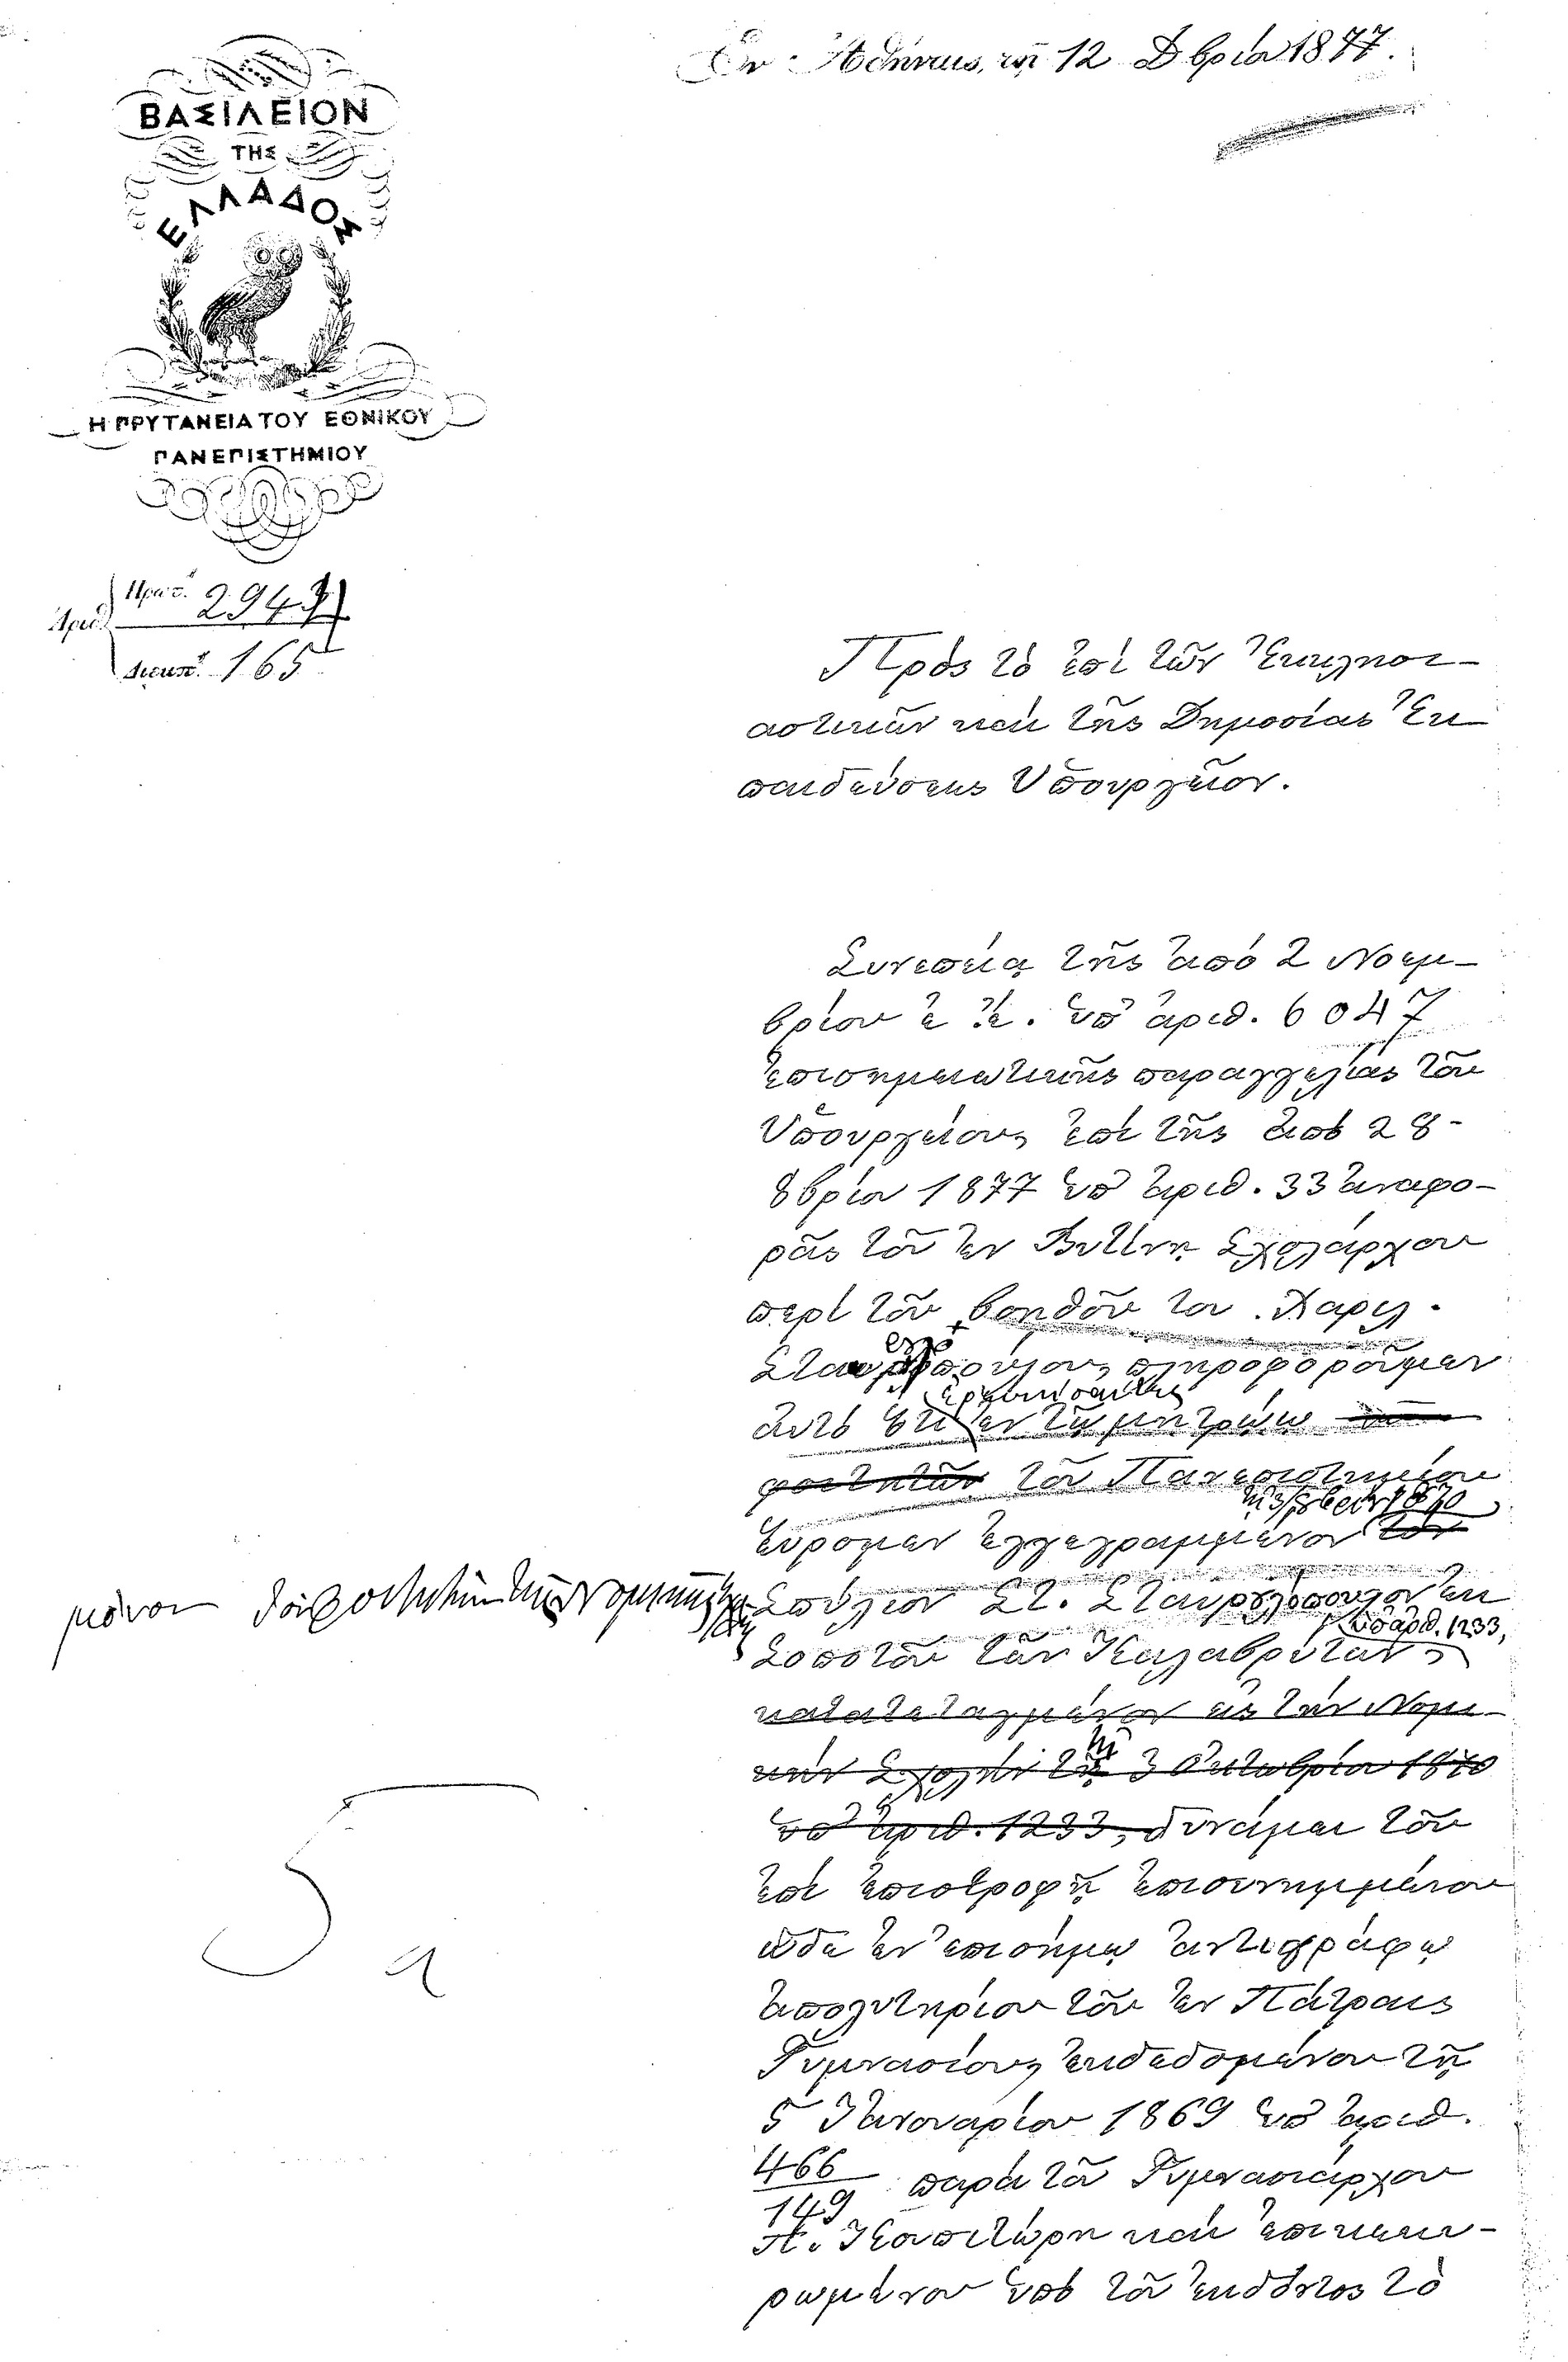 Ἐν Ἀθήναις, τῇ 12 Δβρίου 1877.
ΒΑΣΙΛΕΙΟΝ
ΤΗΣ
ΕΛΛΑΔΟΣ
Η ΠΡΥΤΑΝΕΙΑ ΤΟΥ ΕΘΝΙΚΟΥ
ΠΑΝΕΠΙΣΤΗΜΙΟΥ
Πρωτ. 2947
Ἀριθ.
Διεκπ. 165
Πρὸς τὸ ἐπὶ τῶν Ἐκκλησι-
αστικῶν καὶ τῆς Δημοσίας Ἐκ
παιδεύσεως Ὑπουργεῖον.
Συνεπείᾳ τῆς ἀπὸ 2 Νοεμ-
βρίου ἐ. ἔ. ὑπ' ἀριθ. 6047
ἐπισημειωτικῆς παραγγελίας τοῦ
Ὑπουργείου, ἐπὶ τῆς ἀπὸ 28
8βρίου 1877 ὑπ' ἀριθ. 33 ἀναφο-
ρᾶς τοῦ ἐν Βυτίνῃ Σχολάρχου
περὶ τοῦ βοηθοῦ του Χαριλ.
Σταυροπούλου, πληροφοροῦμεν
αὐτὸ ὅτι ἐν τῷ μητρώῳ
φοιτητῶν τοῦ Πανεπιστημίου
τῇ 3 8βρίου 1870
εὕρομεν ἐγγεγραμμένον τὸν
μόνον
Σπύλιον Στ. Σταυρόπουλον ἐκ
ὑπ' ἀριθ. 1233,
Σοποτοῦ τῶν Καλαβρύτων,
κατατεταγμένον εἰς τὴν Νομι-
κὴν Σχολὴν τῇ 3 Ὀκτωβρίου 1870
ὑπ' ἀριθ. 1233, δυνάμει τοῦ
ἐπὶ ἐπιστροφῇ ἐπισυνημμένου
ὧδε ἐν ἐπισήμῳ ἀντιγράφῳ
ἀπολυτηρίου τοῦ ἐν Πάτραις
Γυμνασίου, ἐκδεδομένου τῇ
5 Ἰανουαρίου 1869 ὑπ' ἀριθ.
466
149 παρὰ τοῦ Γυμνασιάρχου
καὶ ἐπικεκυ-
ρωμένου ὑπὸ τοῦ ἐκδόντος τὸ
5
α